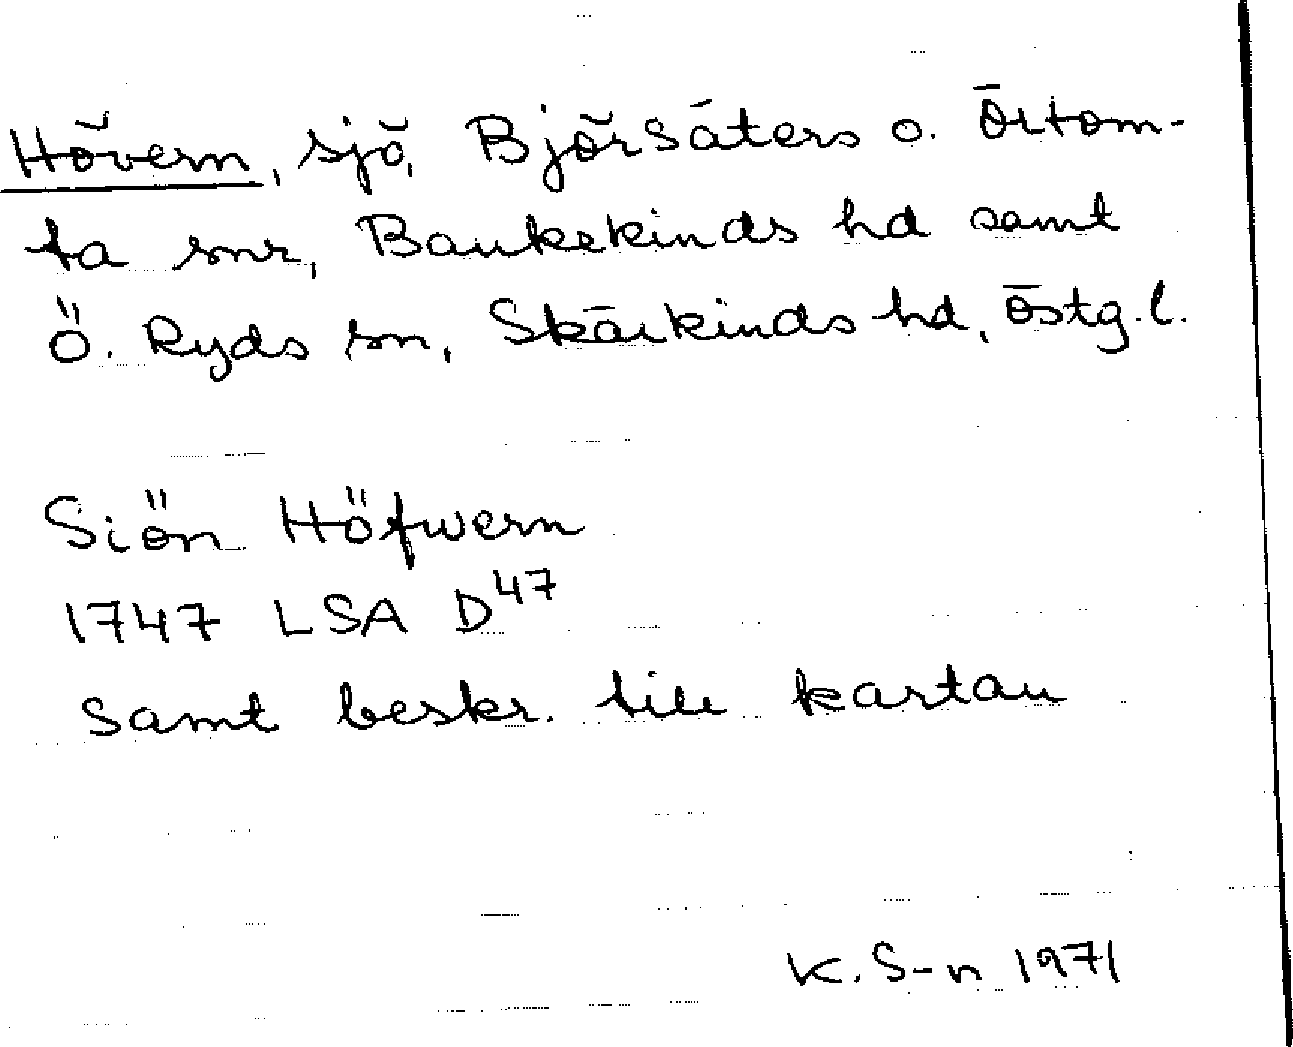 Hövern, sjö, Björsäters o. Örtom-
ta snr, Bankekinds hd samt
Ö. Ryds sn, Skärkinds hd, Östg.l.
Siön Höfwern
1747 LSA D47
samt beskr. till kartan
K. S-n 1971